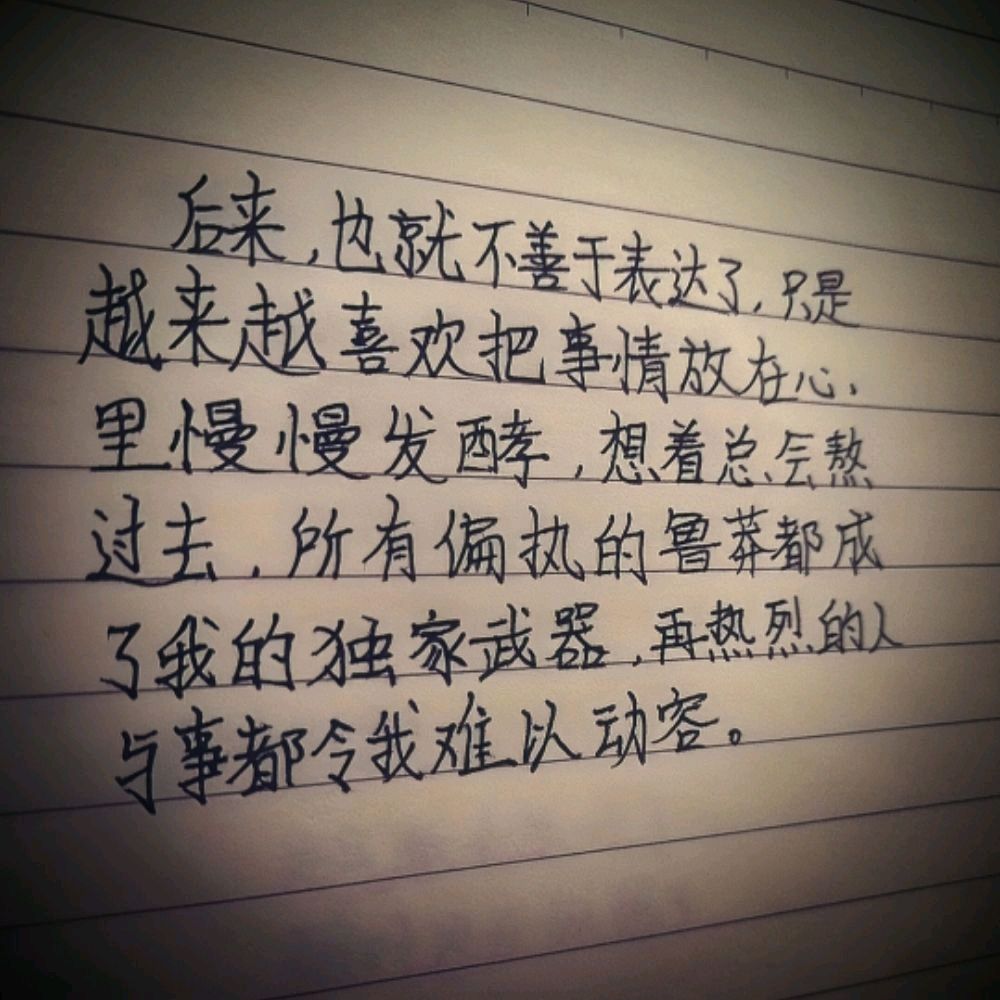 后来,也就不善于表达了,只是
越来越喜欢把事情放在心
里慢慢发酵,想着总会熬
过去,所有偏执的鲁莽都成
了我的独家武器,再热烈的人
与事都令我难以动容。